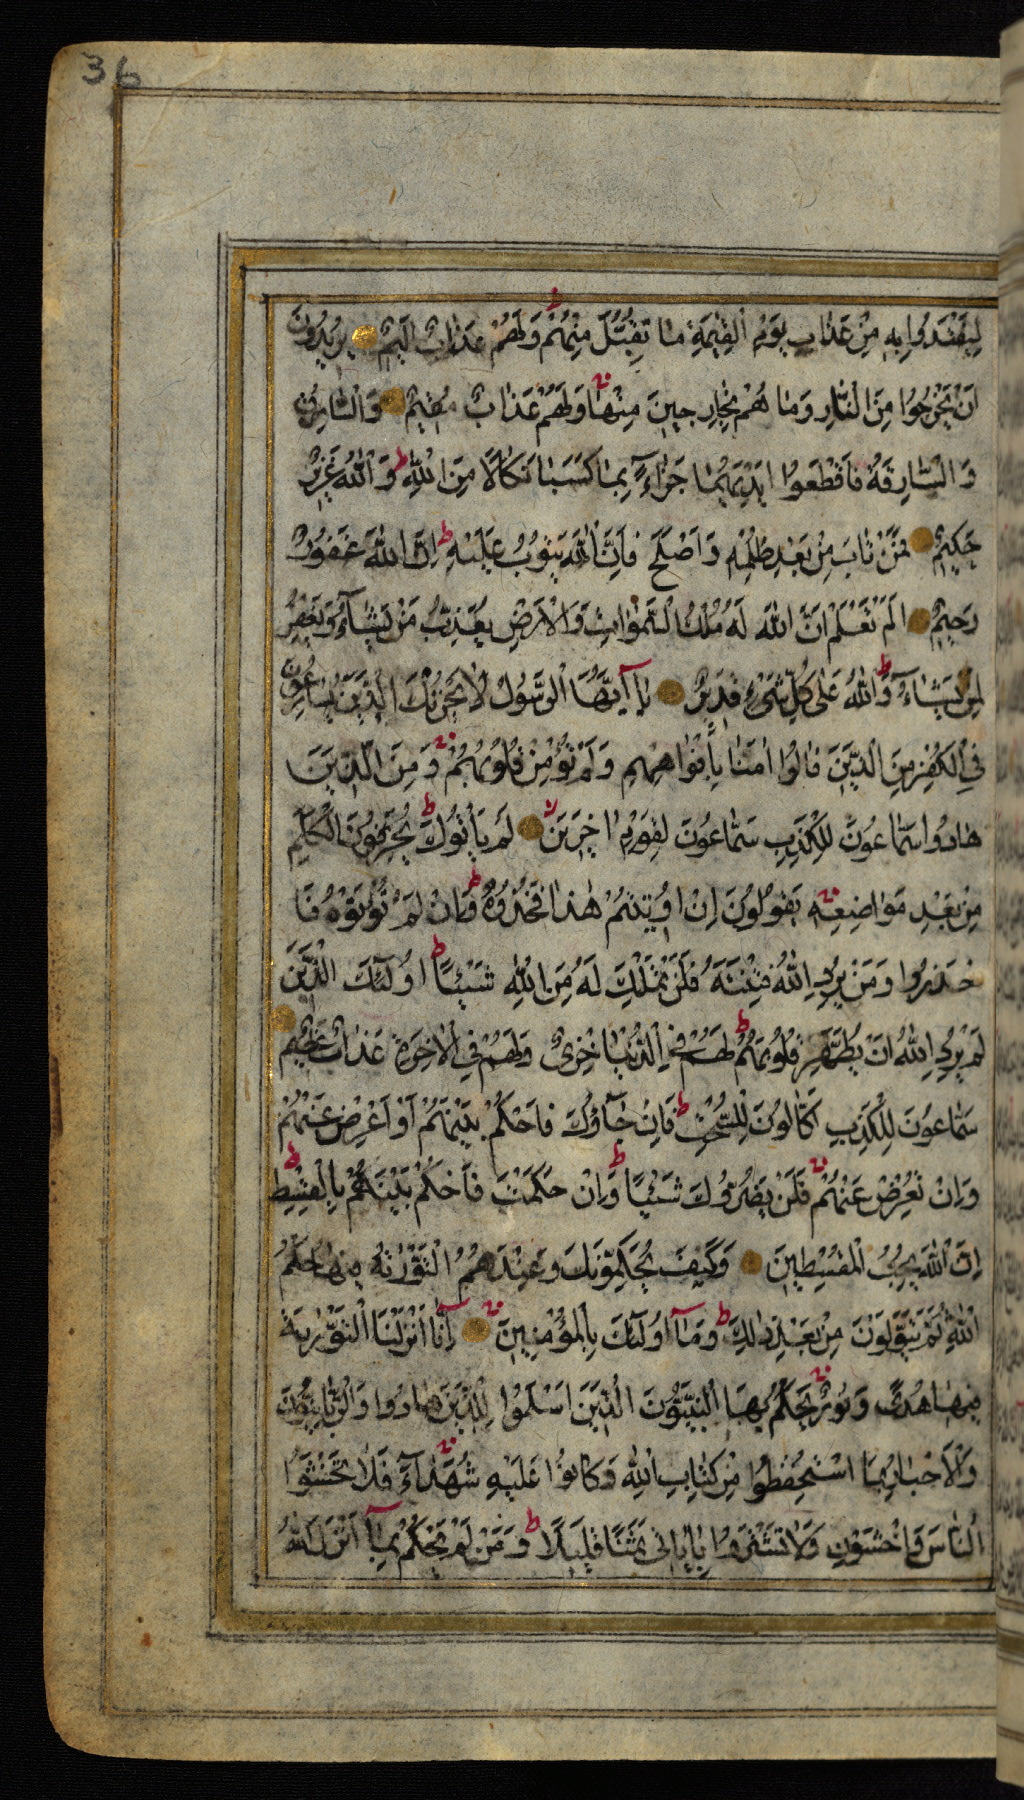 36
لِيَفْتَدُوا بِهِ مِنْ عَذَابِ يَوْمِ الْقِيٰمَةِ مَا تُقُبِّلَ مِنْهُمْ وَلَهُمْ عَذَابٌ اَلِيمٌ يُرِيدُونَ
اَنْ يَخْرُجُوا مِنَ النَّارِ وَمَا هُمْ بِخَارِجِينَ مِنْهَا وَلَهُمْ عَذَابٌ مُقِيمٌ وَالسَّارِقُ
وَالسَّارِقَةُ فَاقْطَعُوا اَيْدِيَهُمَا جَزَاءً بِمَا كَسَبَا نَكَالًا مِنَ اللّٰهِ ط وَاللّٰهُ عَزِيزٌ
حَكِيمٌ فَمَنْ تَابَ مِنْ بَعْدِ ظُلْمِهِ وَاَصْلَحَ فَاِنَّ اللّٰهَ يَتُوبُ عَلَيْهِ ط اِنَّ اللّٰهَ غَفُورٌ
رَحِيمٌ اَلَمْ تَعْلَمْ اَنَّ اللّٰهَ لَهُ مُلْكُ السَّمٰوَاتِ وَالْاَرْضِ يُعَذِّبُ مَنْ يَشَآءُ وَيَغْفِرُ
لِمَنْ يَشَآءُ ط وَاللّٰهُ عَلٰى كُلِّ شَىْءٍ قَدِيرٌ يَآ اَيُّهَا الرَّسُولُ لَا يَحْزُنْكَ الَّذِينَ يُسَارِعُونَ
فِى الْكُفْرِ مِنَ الَّذِينَ قَالُوا اٰمَنَّا بِاَفْوَاهِهِمْ وَلَمْ تُؤْمِنْ قُلُوبُهُمْ وَمِنَ الَّذِينَ
هَادُوا سَمَّاعُونَ لِلْكَذِبِ سَمَّاعُونَ لِقَوْمٍ اٰخَرِينَ لا لَمْ يَأْتُوكَ ط يُحَرِّفُونَ الْكَلِمَ
مِنْ بَعْدِ مَوَاضِعِهِ يَقُولُونَ اِنْ اُوتِيتُمْ هٰذَا فَخُذُوهُ ط وَاِنْ لَمْ تُؤْتَوْهُ فَا
حْذَرُوا وَمَنْ يُرِدِ اللّٰهُ فِتْنَتَهُ فَلَنْ تَمْلِكَ لَهُ مِنَ اللّٰهِ شَيْئًا ط اُولٰئِكَ الَّذِينَ
لَمْ يُرِدِ اللّٰهُ اَنْ يُطَهِّرَ قُلُوبَهُمْ ط لَهُمْ فِى الدُّنْيَا خِزْىٌ وَلَهُمْ فِى الْاٰخِرَةِ عَذَابٌ عَظِيمٌ
سَمَّاعُونَ لِلْكَذِبِ اَكَّالُونَ لِلسُّحْتِ ط فَاِنْ جَآؤُكَ فَاحْكُمْ بَيْنَهُمْ اَوْ اَعْرِضْ عَنْهُمْ
وَاِنْ تُعْرِضْ عَنْهُمْ فَلَنْ يَضُرُّوكَ شَيْئًا ط وَاِنْ حَكَمْتَ فَاحْكُمْ بَيْنَهُمْ بِالْقِسْطِ ط
اِنَّ اللّٰهَ يُحِبُّ الْمُقْسِطِينَ وَكَيْفَ يُحَكِّمُونَكَ وَعِنْدَهُمُ التَّوْرٰيةُ فِيهَا حُكْمُ
اللّٰهِ ثُمَّ يَتَوَلَّوْنَ مِنْ بَعْدِ ذٰلِكَ ط وَمَآ اُولٰئِكَ بِالْمُؤْمِنِينَ اِنَّآ اَنْزَلْنَا التَّوْرٰيةَ
فِيهَا هُدًى وَنُورٌ يَحْكُمُ بِهَا النَّبِيُّونَ الَّذِينَ اَسْلَمُوا لِلَّذِينَ هَادُوا وَالرَّبَّانِيُّونَ
وَالْاَحْبَارُ بِمَا اسْتُحْفِظُوا مِنْ كِتَابِ اللّٰهِ وَكَانُوا عَلَيْهِ شُهَدَآءَ فَلَا تَخْشَوُا
النَّاسَ وَاخْشَوْنِ وَلَا تَشْتَرُوا بِاٰيَاتِى ثَمَنًا قَلِيلًا ط وَمَنْ لَمْ يَحْكُمْ بِمَآ اَنْزَلَ اللّٰهُ